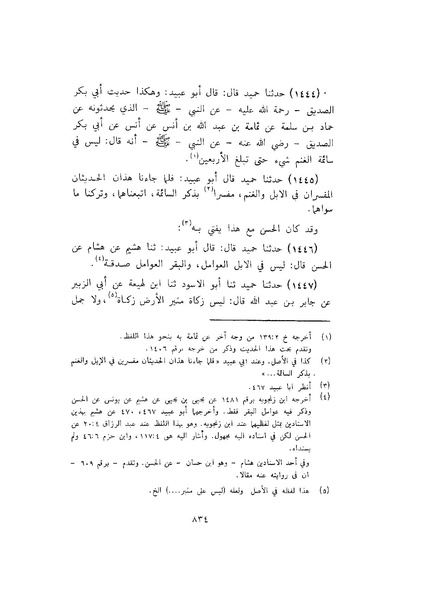 (١٤٤٤) حدثنا حميد قال: قال أبو عبيد: وهكذا حديث أبي بكر
الصديق - رحمة الله عليه - عن النبي - ﷺ - الذي يحدثونه عن
حماد بن سلمة عن ثمامة بن عبد الله بن أنس عن أنس عن أبي بكر
الصديق - رضي الله عنه - عن النبي - ﷺ - أنه قال: ليس في
سائمة الغنم شيء حتى تبلغ الأربعين(١).
(١٤٤٥) حدثنا حميد قال: قال أبو عبيد: فلما جاءنا هذان الحديثان
المفسران في الابل والغنم، مفسرا(٢) بذكر السائمة، اتبعناهما، وتركنا ما
سواهما.
وقد كان الحسن مع هذا يفتي به(٣):
(١٤٤٦) حدثنا حميد قال: قال أبو عبيد: ثنا هشيم عن هشام عن
الحسن قال: ليس في الابل العوامل، والبقر العوامل صدقة(٤).
(١٤٤٧) حدثنا حميد ثنا أبو الاسود ثنا ابن لهيعة عن أبي الزبير
عن جابر بن عبد الله قال: ليس زكاة مثير الأرض زكاة(٥)، ولا جمل
(١) أخرجه خ ١٣٩:٢ من وجه آخر عن ثمامة به بنحو هذا اللفظ.
وتقدم بحث هذا الحديث وذكر من خرجه برقم ١٤٠٦.
(٢) كذا في الأصل. وعند ابي عبيد «فلما جاءنا هذان الحديثان مفسرين في الإبل والغنم
بذكر السائمة...»
(٣) أنظر ابا عبيد ٤٦٧.
(٤) أخرجه ابن زنجويه برقم ١٤٨١ عن يحيى بن يحيى عن هشيم عن يونس عن الحسن
وذكر فيه عوامل البقر فقط. وأخرجها أبو عبيد ٤٦٧، ٤٧٠ عن هشيم بهذين
الاسنادين بمثل لفظيهما عند ابن زنجويه. وهو بهذا اللفظ عند عبد الرزاق ٢٠:٤ عن
الحسن لكن في اسناده اليه مجهول. وأشار اليه هق ١١٧:٤، وابن حزم ٤٦:٦ ولم
يسنداه.
وفي أحد الاسنادين هشام - وهو ابن حسان - عن الحسن. وتقدم - برقم ٦٠٩ -
ان في روايته عنه مقالا.
(٥) هذا لفظه في الأصل ولعله (ليس على مثير....) الخ.
٨٣٤